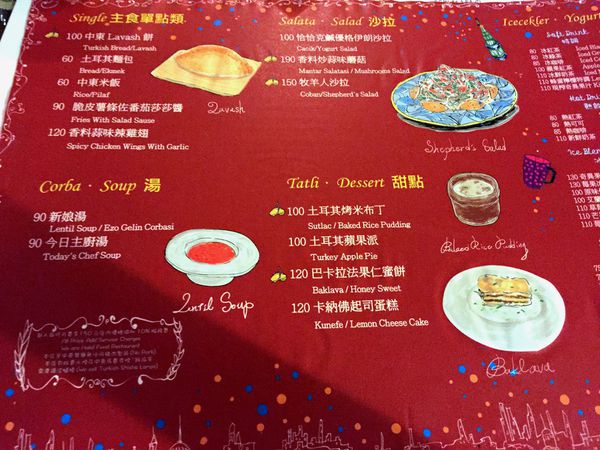 Single 主食單點類
100 中東 Lavash 餅
Turkish Bread/Lavash
60 土耳其麵包
Bread/Ekmek
60 中東米飯
Rice/Pilaf
90 脆皮薯條佐番茄莎莎醬
Fries With Salad Sause
120 香料蒜味辣雞翅
Spicy Chicken Wings With Garlic
Lavash
Corba · Soup 湯
90 新娘湯
Lentil Soup / Ezo Gelin Corbasi
90 今日主廚湯
Today's Chef Soup
Lentil Soup
Salata · Salad 沙拉
100 恰恰克鹹優格伊朗沙拉
Cacik/Yogurt Salad
190 香料炒蒜味蘑菇
Mantar Salatasi / Mushrooms Salad
150 牧羊人沙拉
Coban/Shepherd's Salad
Shepherd's Salad
Tatli · Dessert 甜點
100 土耳其烤米布丁
Sutlac / Baked Rice Pudding
100 土耳其蘋果派
Turkey Apple Pie
120 巴卡拉法果仁蜜餅
Baklava / Honey Sweet
120 卡納佛起司蛋糕
Kunefe / Lemon Cheese Cake
Baked Rice Pudding
Baklava
Icecekler · Yogurt
Soft Drink
80 冰紅茶
80 冰奶茶
Hot
80 熱紅茶
80 熱可可
80 熱咖啡
Ice Blen
All Price Add Service Charges
We are Halal Food Restaurant
(No Pork)
(We sell Turkish Shisha Lamps)